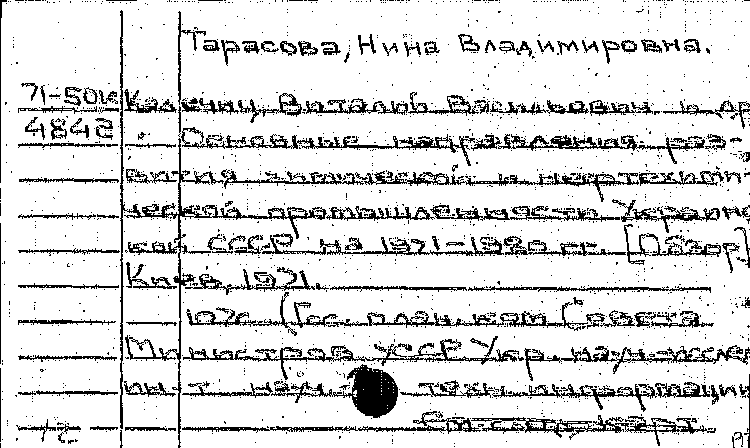 Тарасова, Нина Владимировна.
71-50к Виталий Васильович и др
4842 Основные направления раз-
вития химической и нефтехими-
ческой промышленности Украинс
кой СССР на 1971-1980 гг. [Обзор]
Киев, 1971.
107с (Гос. план. ком Совета
Министров УССР Укр. науч-исслед
ин-т науч. техн информации
См. след. карт.